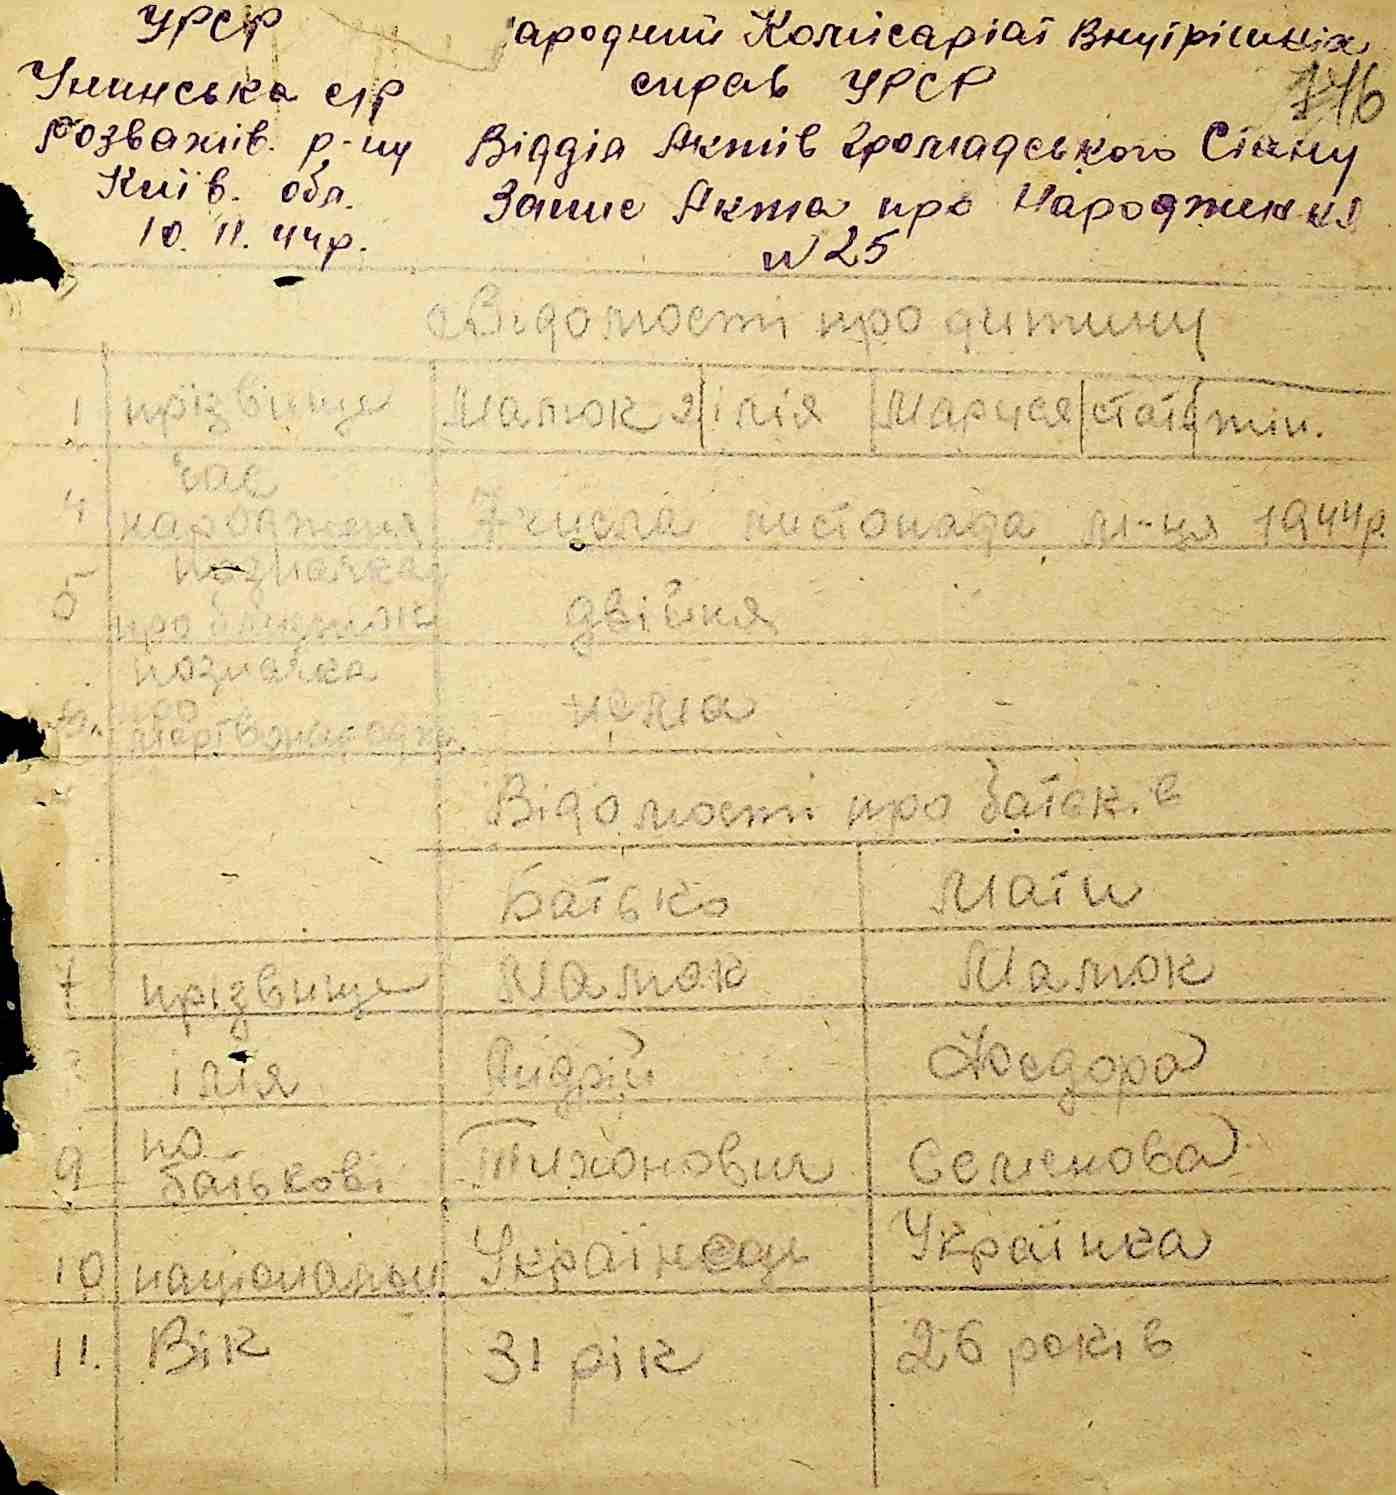 УРСР
Унинська с/р
Розважів. р-ну
Київ. обл.
10. 11. 44р.
ародний Комісаріат Внутрішніх
справ УРСР
146
Відділ Актів Громадського Стану
Запис Акта про Народження
N 25
Відомості про дитину
1 прізвище Малюк 2 імя Маруся стать жін.
4 час народженя 7 числа листопада м-ця 1944р.
5 позначка про близнюк двійня
6. позначка про мертвонародж. нема
Відомості про батьків
Батько Мати
7 прізвище Малюк Малюк
імя Андрій Федора
9 по батькові Тихонович Семенова
10 національн Українець Українка
11. Вік 31 рік 26 років